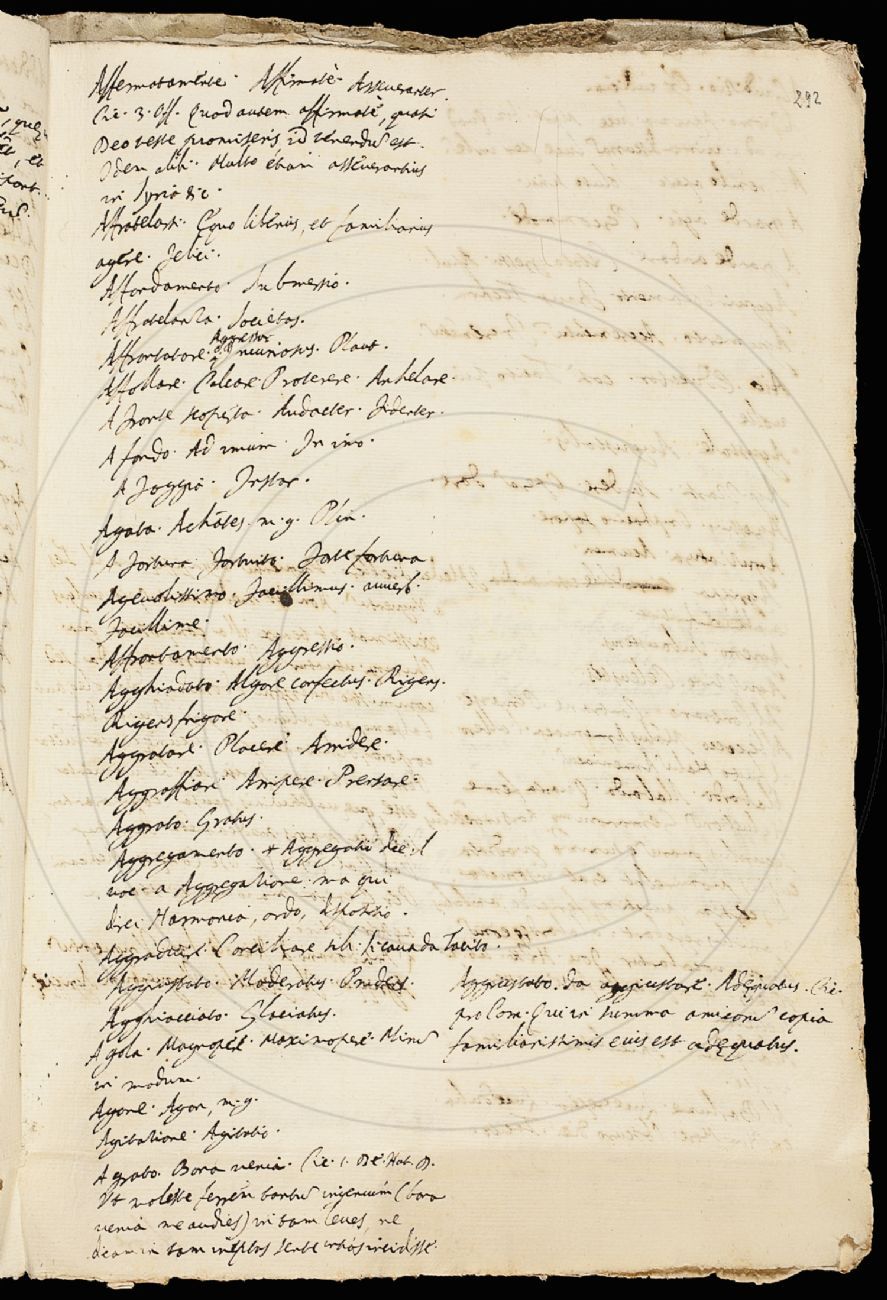 292
Affermatamente. Affirmatè. Asseveranter.
Cic. 3. Off. Quod autem affirmatè, quasi
Deo teste promiseris, id tenendũ est.
Idem alibi. Multo etiam asseverantius
in
Affratellarsi. Equo liberius, et familiarius
agere. Felici.
Affondamento. Submersio.
Affratelanza. Societas.
Affrontatore. Aggressor
iniuriosus. Plaut.
Affollare. Calcare. Proterere. Anhelare.
A fronte scoperta. Audacter. Fidenter.
A fondo. Ad imum. In imo.
A foggia. Instar.
Agata. Achates. m. g. Plin.
A fortuna. Fortuito. Forte fortuna.
Agevolissimo. Facillimus. avverb.
Facillime.
Affrontamento. Aggressio.
Agghiadato. Algore confectus. Rigens.
Rigens frigore.
Aggratare. Placere. Arridere.
Aggraffiare. Arripere. Prensare.
Aggrato. Gratus.
Aggregamento. + Aggregatū dice il
voc. a Aggregatione. ma qui
direi Harmonia, ordo, dispositio.
Aggraduirsi. Conciliare sibi. si cava da Tacito.
Aggiustato. Moderatus. Prudens.
Agghiacciato. Glaciatus.
Agola. Magnopere. Maximopere. Mirũ
in modum.
Agone. Agon, m. g.
Agitatione. Agitatio.
A grato. Bona venia. Cic. 1. De Nat. D.
Ut moleste ferrem tantũ ingenium (bona
venia me audies) in tam leves, ne
dicam in tam ineptas sententias incidisse.
Aggiustato. da aggiustare. Adęquatus. Cic.
pro Com. Qui in summa amicorũ copia
familiarissimis eius est adęquatus.